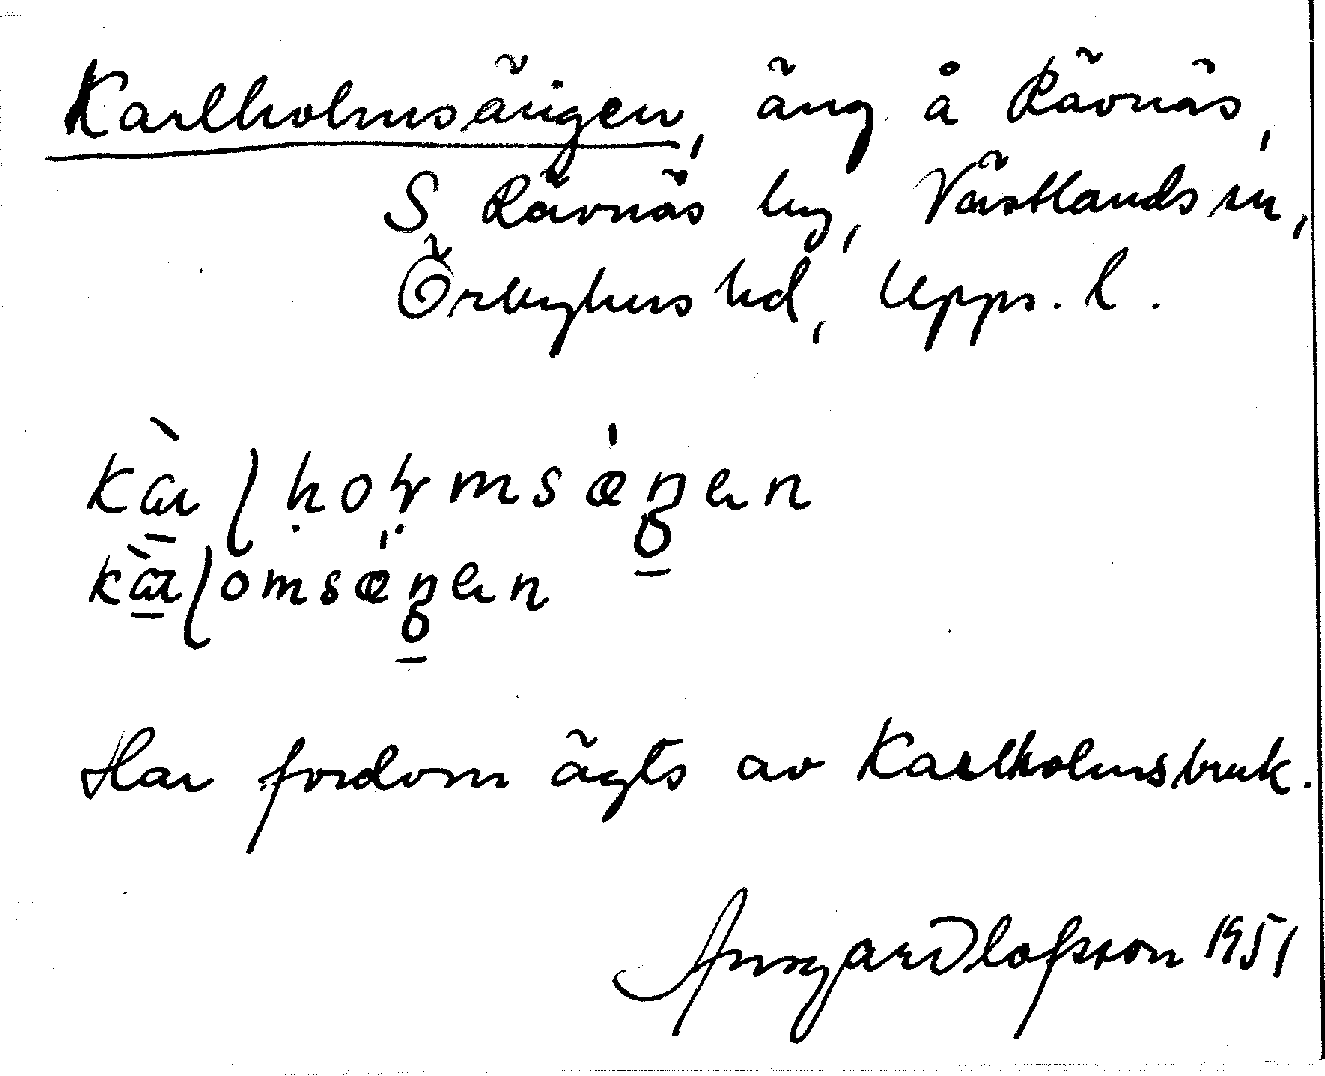 Karlholmsängen, äng å Rävnäs,
S Rävnäs by, Västlands sn,
Örbyhus hd, Upps. l.
Har fordom ägts av Karlholmsbruk.
Ansgar Olofsson 1951